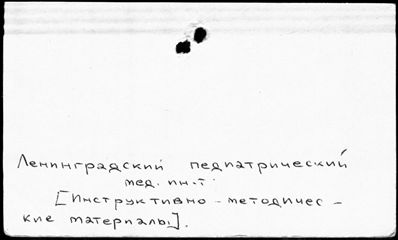 Ленинградский педиатрический
мед. ин-т
[Инструктивно-методичес-
кие материалы].